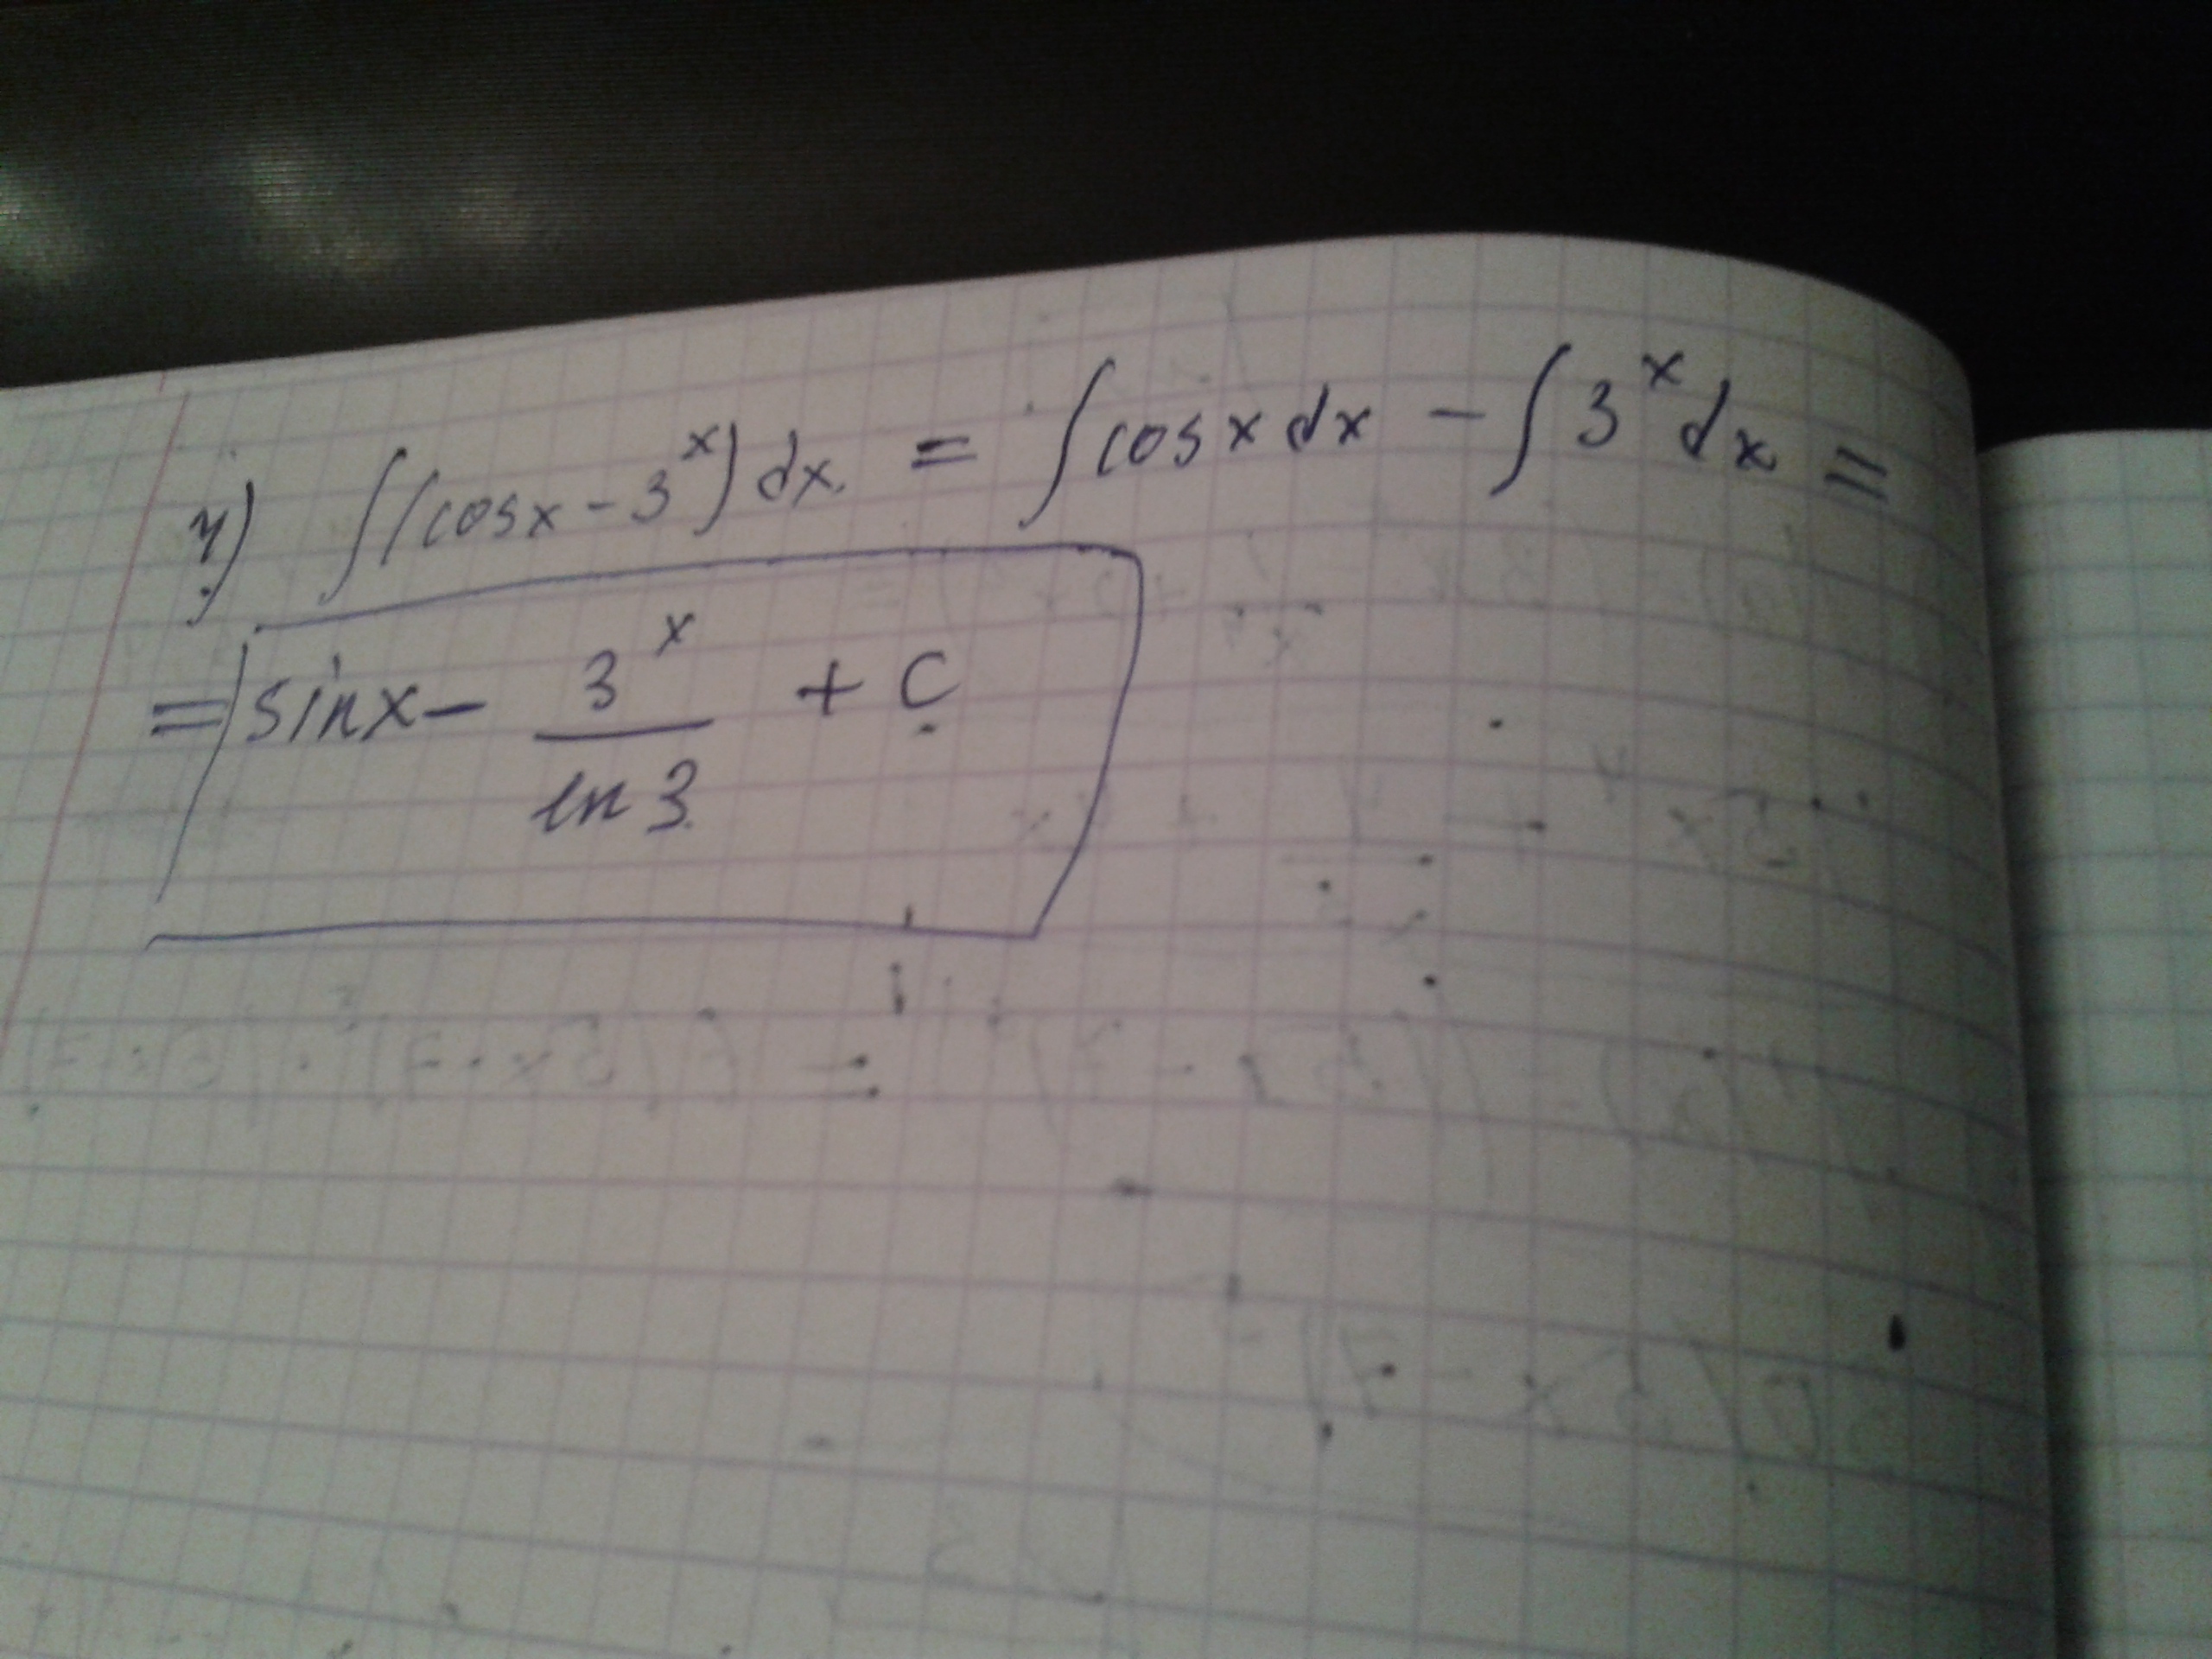 4) ∫(cosx-3^x)dx = ∫cosxdx - ∫3^x dx =
= sinx - 3^x/ln3 + C